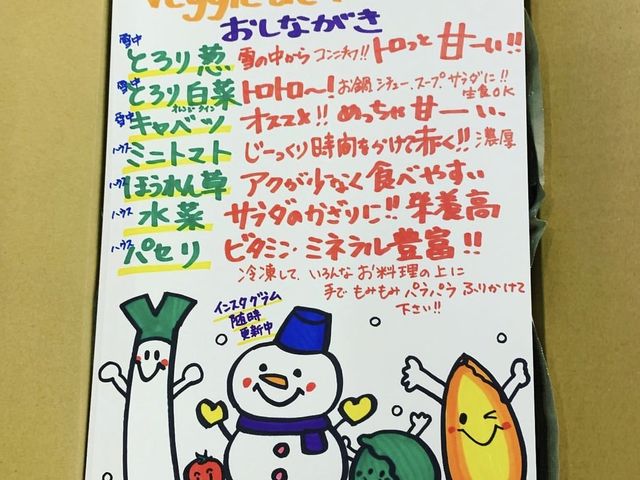 おしながき
雪中 とろり葱 雪の中から コンニチワ!! トロっと 甘ーい!!
雪中 とろり白菜 トロトロ〜! お鍋、シチュー、スープ、サラダに!! 生食OK
オレンジクイン
雪中 キャベツ オススメ!! めっちゃ 甘ーい、
ハウス ミニトマト じーっくり時間をかけて赤く!! 濃厚
ハウス ほうれん草 アクが少なく食べやすい
ハウス 水菜 サラダのかざりに!! 栄養高
ハウス パセリ ビタミン・ミネラル豊富!!
冷凍して、いろんなお料理の上に
手でもみもみパラパラふりかけて
下さい!!
インスタグラム
随時
更新中